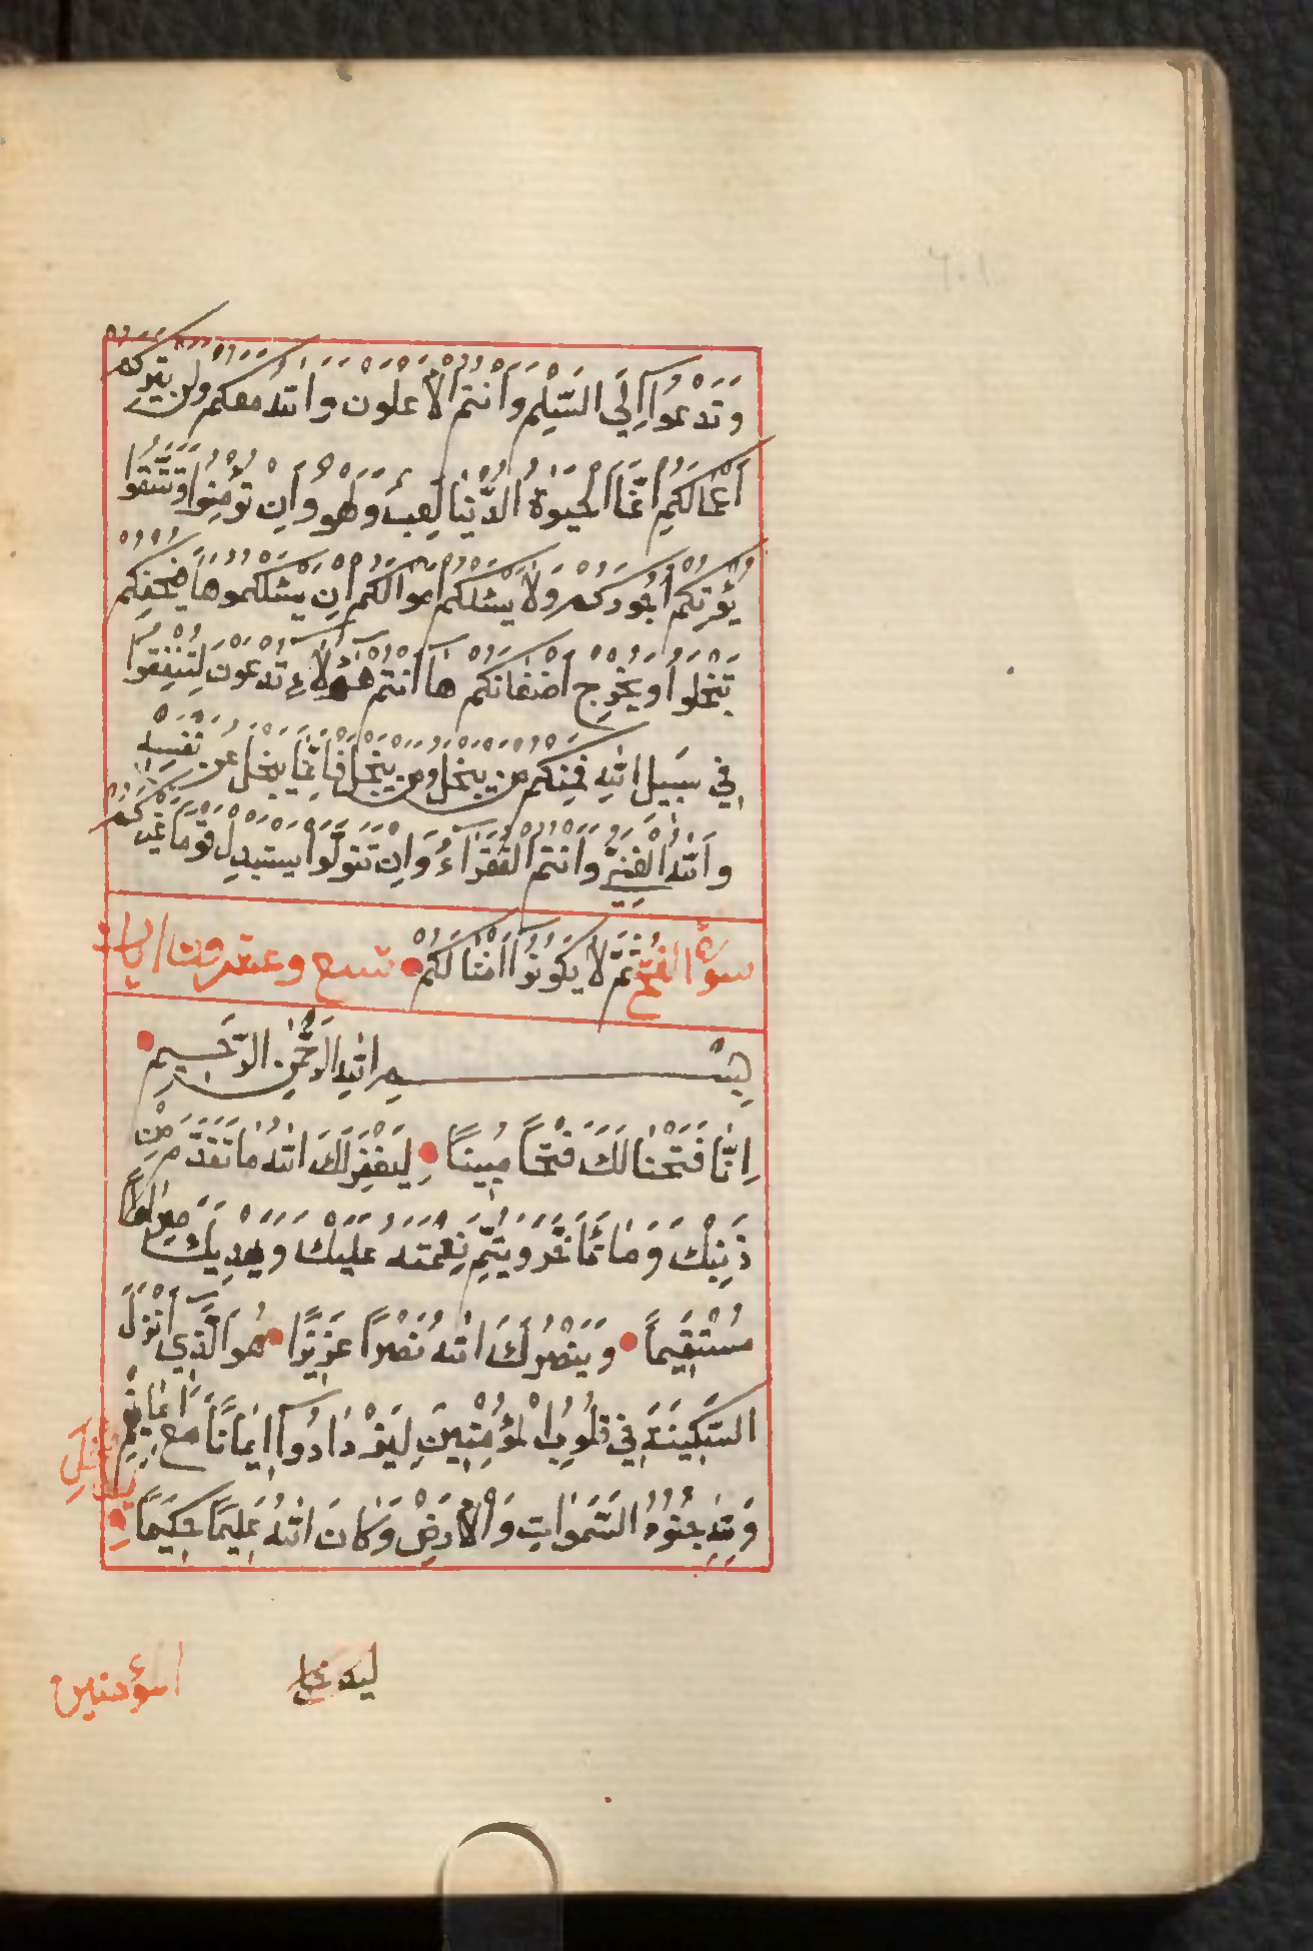 وَتَدْعُوا اِلَى السَّلْمِ وَاَنْتُمُ الْاَعْلَوْنَ وَاللّٰهُ مَعَكُمْ وَلَنْ يَتِرَكُمْ
اَعْمَالَكُمْ اِنَّمَا الْحَيٰوةُ الدُّنْيَا لَعِبٌ وَلَهْوٌ وَاِنْ تُؤْمِنُوا وَتَتَّقُوا
يُؤْتِكُمْ اُجُورَكُمْ وَلَا يَسْئَلْكُمْ اَمْوَالَكُمْ اِنْ يَسْئَلْكُمُوهَا فَيُحْفِكُمْ
تَبْخَلُوا وَيُخْرِجْ اَضْغَانَكُمْ هَا اَنْتُمْ هٰؤُلَاءِ تُدْعَوْنَ لِتُنْفِقُوا
فِي سَبِيلِ اللّٰهِ فَمِنْكُمْ مَنْ يَبْخَلُ وَمَنْ يَبْخَلْ فَاِنَّمَا يَبْخَلُ عَنْ نَفْسِهِ
وَاللّٰهُ الْغَنِيُّ وَاَنْتُمُ الْفُقَرَاءُ وَاِنْ تَتَوَلَّوْا يَسْتَبْدِلْ قَوْمًا غَيْرَكُمْ
سورة الفتح ثُمَّ لَا يَكُونُوا اَمْثَالَكُمْ تسع وعشرون ايات
بِسْمِ اللّٰهِ الرَّحْمٰنِ الرَّحِيمِ
اِنَّا فَتَحْنَا لَكَ فَتْحًا مُبِينًا لِيَغْفِرَ لَكَ اللّٰهُ مَا تَقَدَّمَ مِنْ
ذَنْبِكَ وَمَا تَاَخَّرَ وَيُتِمَّ نِعْمَتَهُ عَلَيْكَ وَيَهْدِيَكَ صِرَاطًا
مُسْتَقِيمًا وَيَنْصُرَكَ اللّٰهُ نَصْرًا عَزِيزًا هُوَ الَّذِي اَنْزَلَ
السَّكِينَةَ فِي قُلُوبِ الْمُؤْمِنِينَ لِيَزْدَادُوا اِيمَانًا مَعَ اِيمَانِهِمْ
وَلِلّٰهِ جُنُودُ السَّمٰوَاتِ وَالْاَرْضِ وَكَانَ اللّٰهُ عَلِيمًا حَكِيمًا
ليدخل
المؤمنين